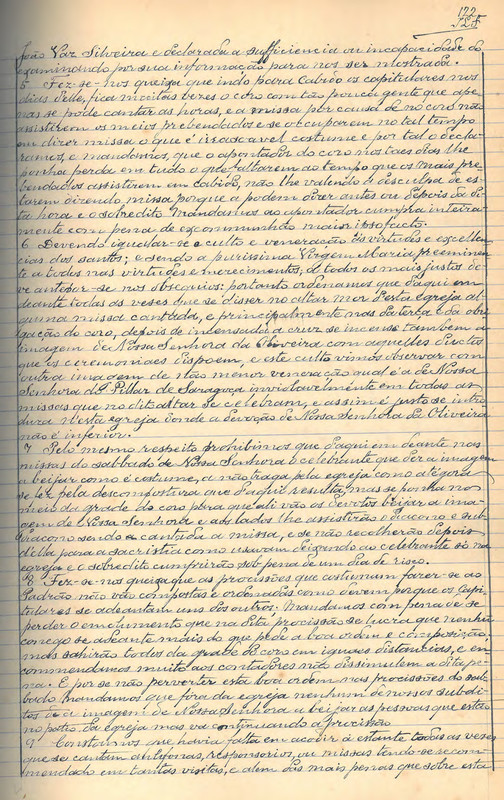 172
João Vaz Silveira e declarada a sufficiencia ou incapacidade do
examinando por sua informação para nos ser mostrada.
5 Fez-se-nos queixa que indo para Cabido os capitulares nos
dias delle, fica muitas vezes o coro com tão pouca gente que ape-
nas se pode cantar as horas, e a missa por causa de no coro não
assistirem os meios prebendados e se occuparem no tal tempo
em dizer missa o que é irracavel costume e por tal o decla-
ramos, e mandamos, que o apontador do coro nos taes dias lhe
ponha perda em tudo o que faltarem ao tempo que os mais pre-
bendados assistirem em cabido, não lhe valendo a desculpa de es-
tarem dizendo missa porque a podem dizer antes ou depois da di-
ta hora e o sobredito mandamos ao apontador cumpra inteira-
mente com pena de excommunhão maior ipso facto.
6 Devendo igualar-se o culto e veneração ás virtudes e excellen-
cias dos santos; e sendo a purissima Virgem Maria preeminen-
te a todos nas virtudes e merecimentos, a todos os mais justos de-
ve antepor-se nos obsequios: portanto ordenamos que daqui em
deante todas as vezes que se disser no altar mor desta egreja al-
guma missa cantada, e principalmente nas da terça e da obri-
gação do coro, depois de incensada a cruz se incense tambem a
imagem de Nossa Senhora da Oliveira com aquelles ductos
que as ceremonias dispoem, e este culto vimos observar com
outra imagem de não menor veneração qual é a de Nossa
Senhora do Pillar de Saragoça inviolavelmente em todas as
missas que no dito altar se celebram, e assim é justo se intro-
duza nesta egreja donde a devoção de Nossa Senhora da Oliveira
não é inferior.
7 Pelo mesmo respeito prohibimos que daqui em deante nas
missas do sabbado de Nossa Senhora o celebrante que der a imagem
a beijar como é costume, a não traga pela egreja como atégora
se fez pela descompostura que daqui resulta, mas se ponha no
meio da grade do coro para que ali vão os devotos beijar a ima-
gem de Nossa Senhora e aos lados lhe assistirão o Diacono e sub-
diacono sendo a cantada a missa, e se não recolherão depois
della para a sacristia como usavam deixando ao celebrante só na
egreja e o sobredito cumprirão sob pena de um dia de risco.
8 Fez-se-nos queixa que as procissões que costumam fazer-se ao
Padrão não vão compostas e ordenadas como devem porque os capi-
tulares se adeantam uns dos outros: Mandamos com pena de se
perder o emolumento que na dita procissão se lucra que nenhum
conego se adeante mais do que pede a boa ordem e composição,
mas sahirão todos da grade do coro em iguaes distancias, e en-
commendamos muito aos contadores não dissimulem a dita pe-
na. E por se não perverter esta boa ordem nas procissões do sab-
bado mandamos que fora da egreja nenhum de nossos subdi-
tos dê a imagem de Nossa Senhora a beijar as pessoas que estão
no patio da egreja mas va continuando a procissão.
9 Constou-nos que havia falta em acodir á estante todas as vezes
que se cantam antifonas, responsorios, ou missas tendo-se recom-
mendado em tantas visitas, e alem das mais penas que sobre esta